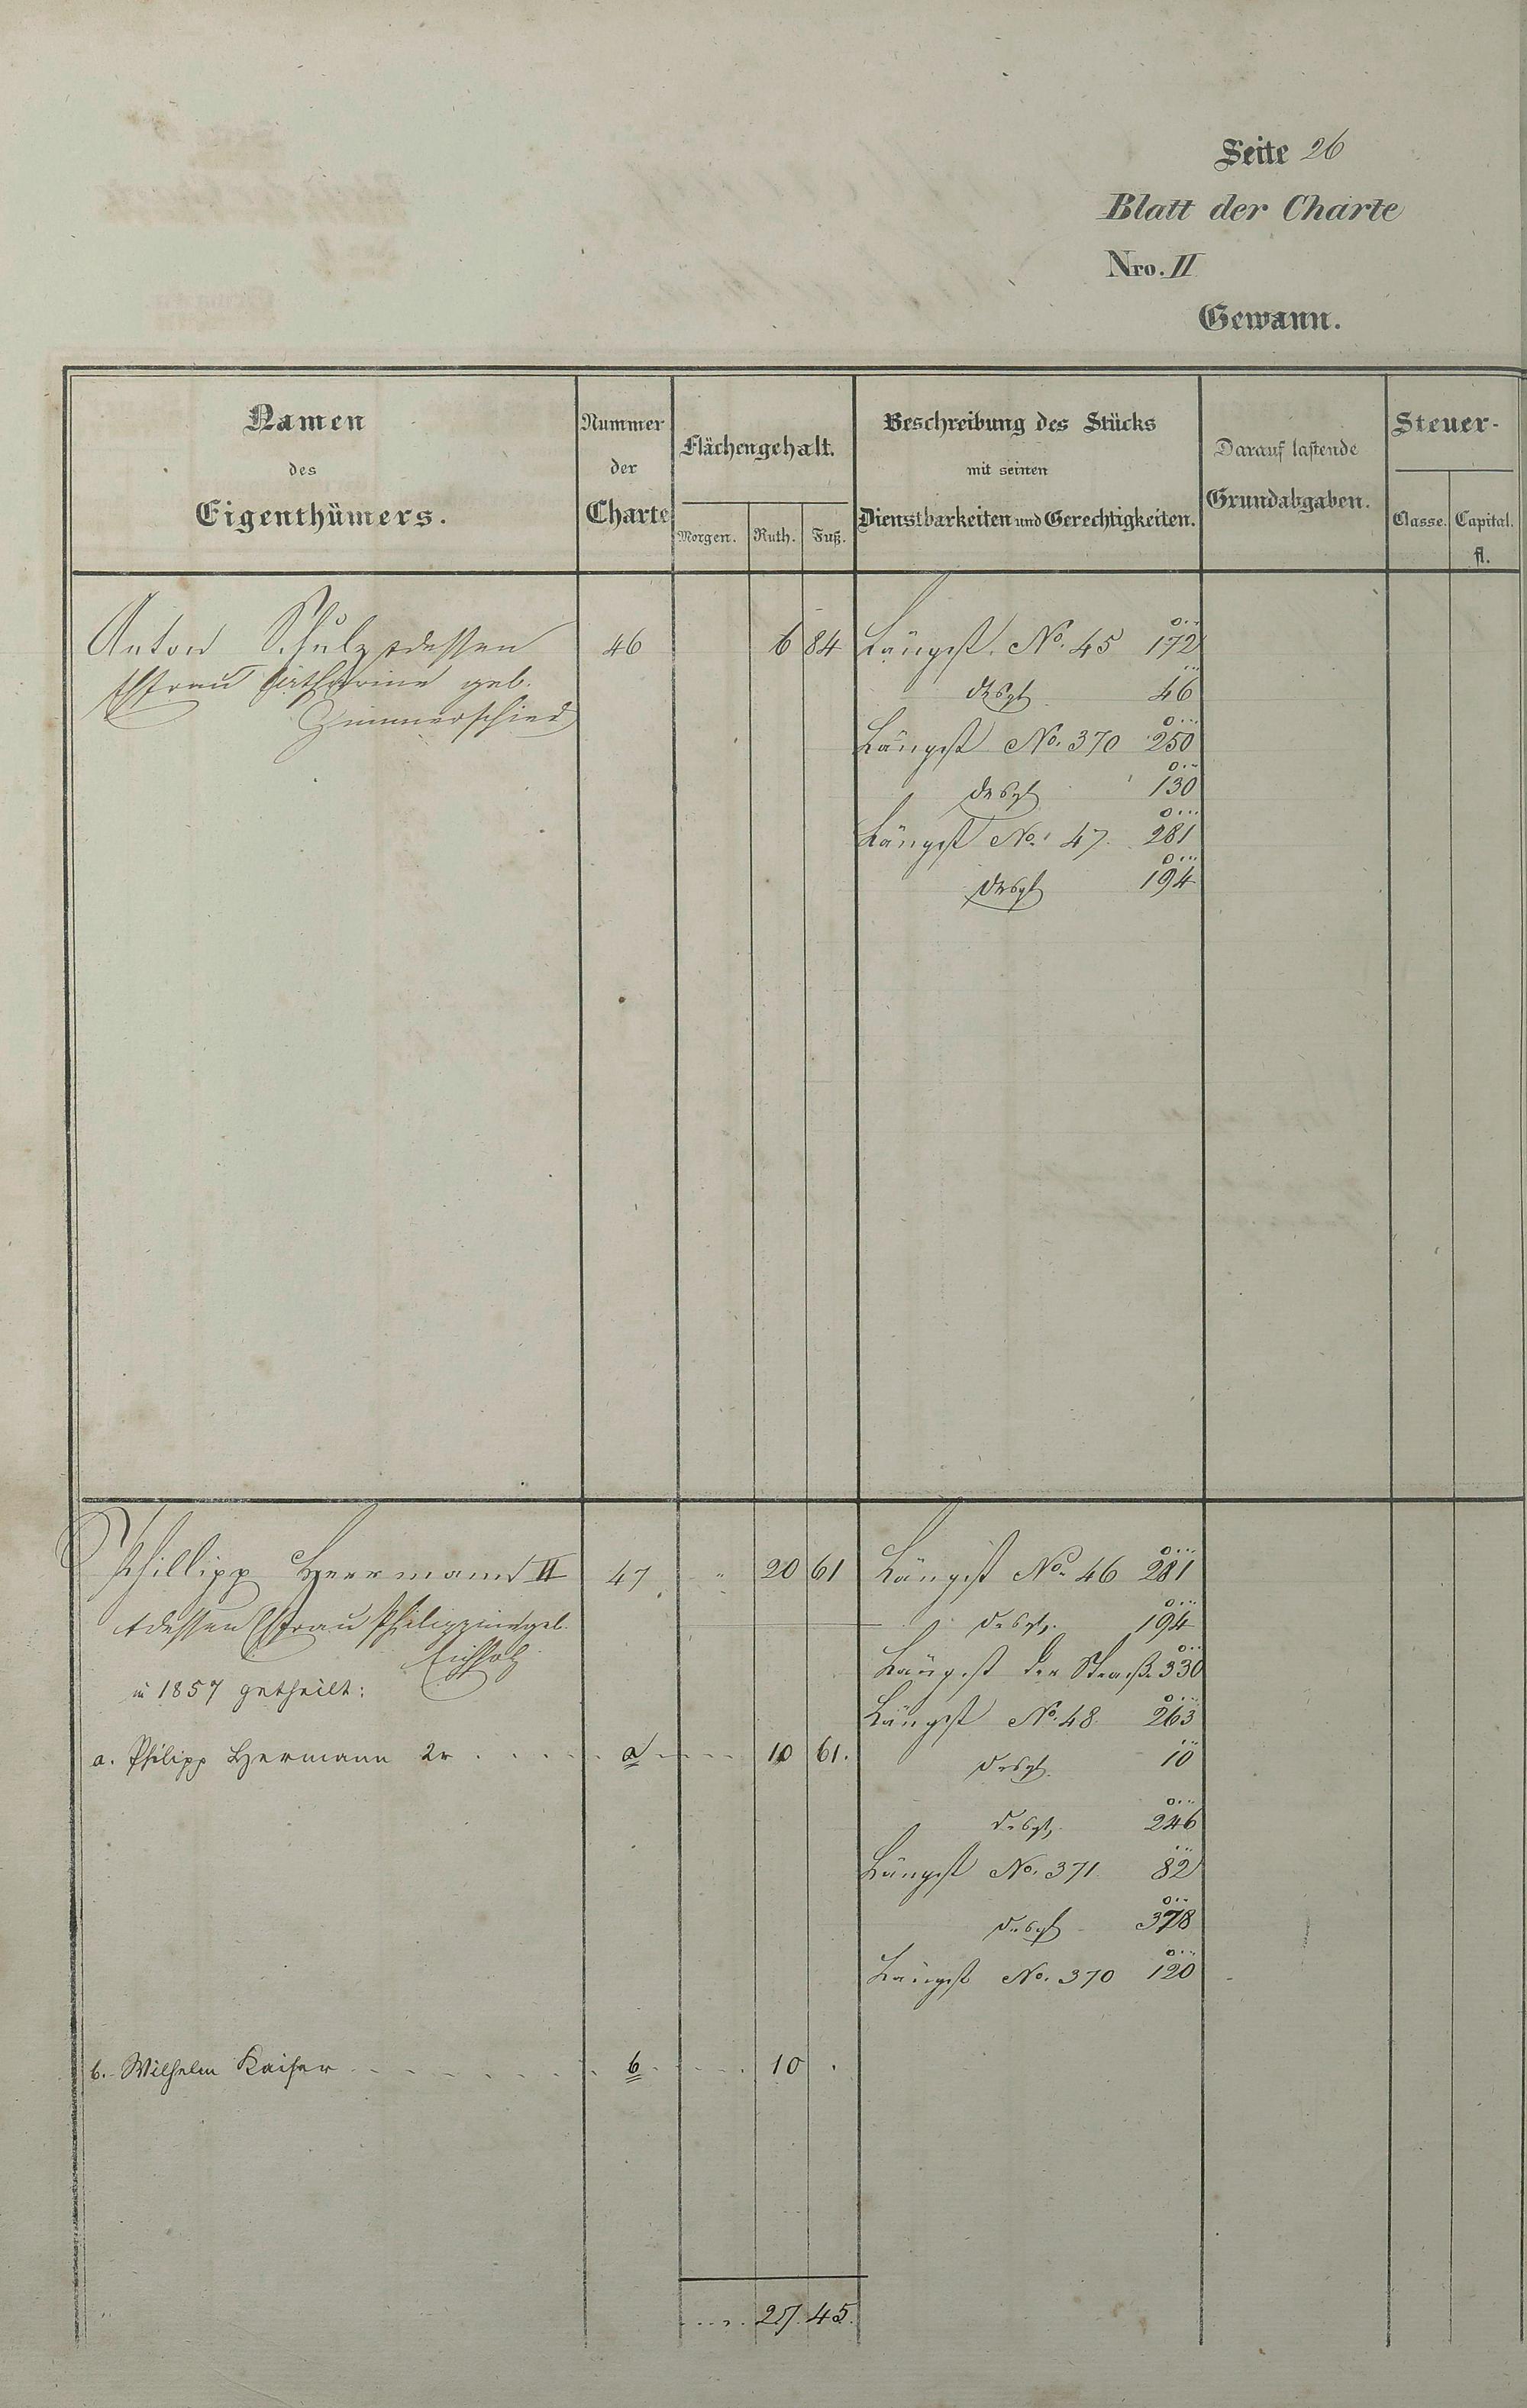 Seite 26
Blatt der Charte
Nro. II
Gewann.
Namen des Eigenthümers.
Nummer der Charte
Flächengehalt.
Morgen. Ruth. Fuß.
Beschreibung des Stücks mit seinen Dienstbarkeiten und Gerechtigkeiten.
Darauf lastende Grundabgaben.
Steuer-
Classe. Capital. fl.
Anton Schulz & dessen 46 6 84 Längst No. 45 172
Ehfrau Catharine geb. desgl. 46
Zimmerschied
Längst No. 370 250
desgl. 130
Längst No. 47. 281
desgl. 194
Phillipp Herrmann II 47 " 20 61 Längst No. 46 281
& dessen Ehfrau Philippine geb. desgl. 194
Eichholz
Längst der Straße 330
in 1857 getheilt:
Längst No. 48. 263
a. Philipp Hermann 2r a 10 61. desgl. 10
desgl. 246
Längst No. 371. 82
desgl. 378
Längst No. 370 120
b. Wilhelm Kaiser b 10
27. 45.